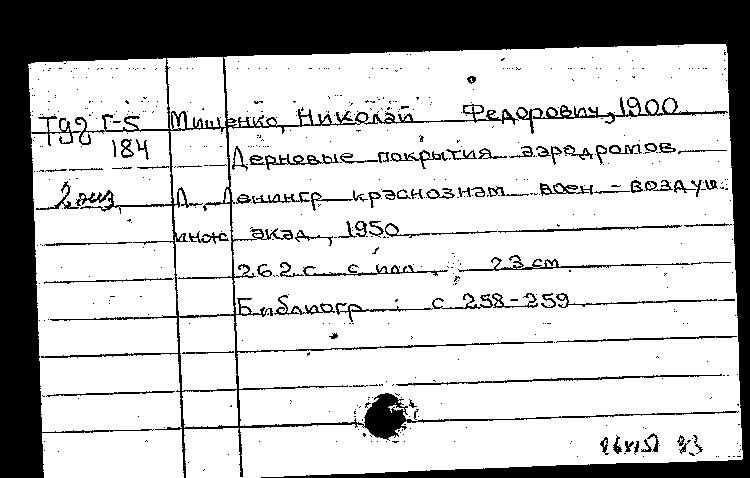 Т98 Г-5 Мищенко, Николай Федорович, 1900
184 Дерновые покрытия аэродромов.
2 экз. Л., Ленингр краснознам воен-воздуш.
инж. акад., 1950.
262 с. с илл. 23 cm
Библиогр : с 258-259.